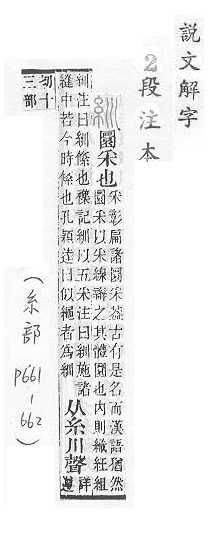 說文解字
2段注本
圜采也
采彰扁諸圜采葢古有是名而漢語猶然
圜采以采線辮之其體圜也內則織紝組
紃注曰紃絛也襍記紃以五采注曰紃施諸
縫中若今時絛也孔穎達曰似繩者爲紃
从糸川聲
詳
遵
切十
三部
(糸部 P661-662)